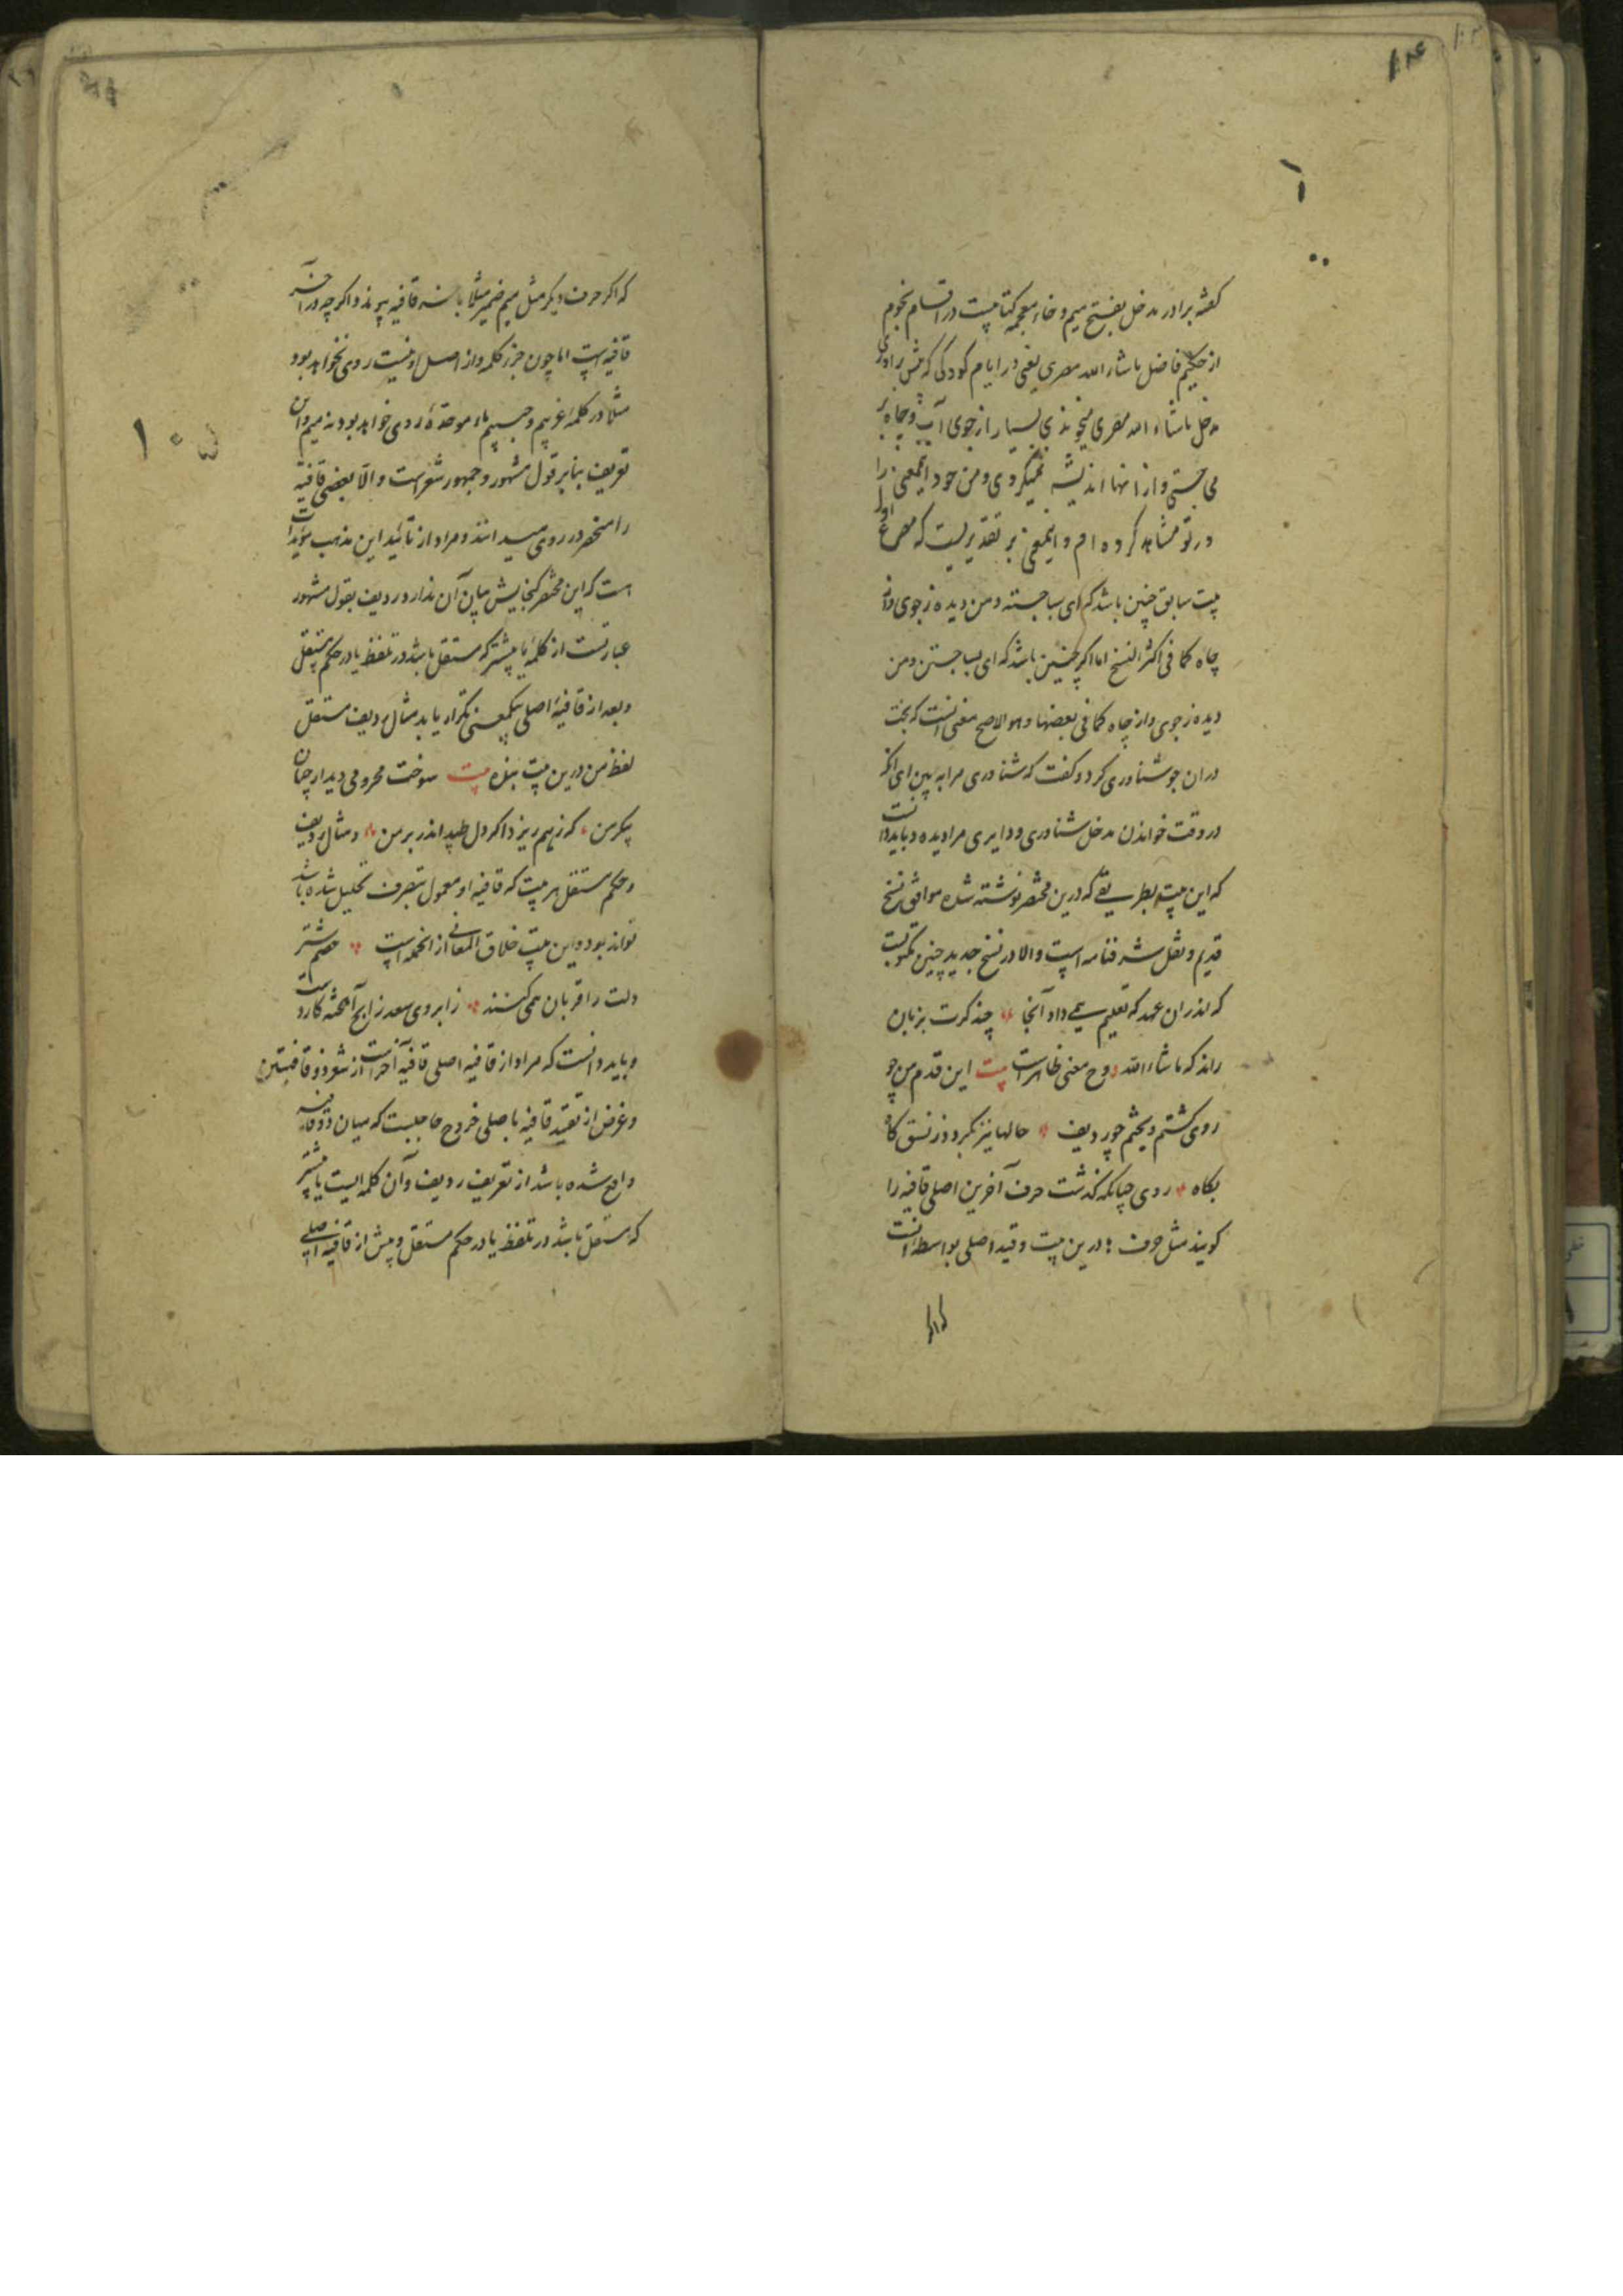 ۱۰۴
گفته برادر مدخل بفتح میم و خاء معجمه کتابیست در اقسام نجوم
از حکیم فاضل ماشاء الله مصری یعنی در ایام کودکی که پیش برادری
مدخل ماشاء الله مصری میخواندی بسیار از جوی آب و چاه پر
می جستی و از آنها اندیشه نمیکردی و من خود اینمعنی را
در تو مشاهده کرده ام و اینمعنی بر تقدیریست که مصرع اول
بیت سابق چنین باشد که ای بسا جسته و من دیده ز جوی واز
چاه کما فی اکثر النسخ اما اگر چنین باشد که ای بسا جستن و من
دیده ز جوی و از چاه کما فی بعضها و هو الاصح معنی آنست که بخت
در آن جو شناوری کرد و گفت که شناوری مرا به بین ای آنکه
در وقت خواندن مدخل شناوری و دایری مرا دیده و باید دانست
که این بیت بطریقی که درین مختصر نوشته شده موافق نسخ
قدیم و نقل شرفنامه است والا در نسخ جدید چنین مکتوبست
که اندران عهد که تعلیم همی داد آنجا چند کرت بزبان
راند که ماشاء الله و ح معنی ظاهر است بیت این قدم من چو
روی گشتم و بچشم چو ردیف حالها نیز بگردد ز نسق گاه
بگاه روی چنانکه گذشت حرف آخرین اصلی قافیه را
گویند مثل حرف ها درین بیت و قید اصلی بواسطه آنست
که اگر
۱۰۵
که اگر حرف دیگر مثل میم ضمیر مثلا باخر قافیه پیوندد اگر چه در آخر
قافیه است اما چون جزء کلمه و از اصل او نیست روی نخواهد بود
مثلا در کلمه غریبم و حبیبم باء موحده روی خواهد بود نه میم و این
تعریف بنابر قول مشهور و جمهور شعراست والا بعضی قافیه
را منحصر در روی میدانند و مراد از تائید این مذهب مؤیدات
است که این مختصر گنجایش بیان آن ندارد و ردیف بقول مشهور
عبارتست از کلمه یا بیشتر که مستقل باشد در تلفظ یا در حکم مستقل
و بعد از قافیه اصلی بیکمعنی تکرار یابد مثال ردیف مستقل
لفظ من درین بیت بنده بیت سوخت محرومی دیدار چنان
پیکر من که ز هم ریزد اگر دل طپد اندر بر من و مثال ردیف
در حکم مستقل هر بیت که قافیه او معمول بتصرف تحلیل شده باشد
تواند بود و این بیت خلاق المعانی از انجمله است خصم شتر
دلت را قربان همی کنند ز ابروی سعد زابح آهخته کاردست
و باید دانست که مراد از قافیه اصلی قافیه آخر است از شعر ذوقافیتین
و غرض از تقید قافیه باصلی خروج حاجبست که میان دو قافیه
واقع شده باشد از تعریف ردیف و آن کلمه ایست یا بیشتر
که مستقل باشد در تلفظ یا در حکم مستقل و پیش از قافیه اصلی